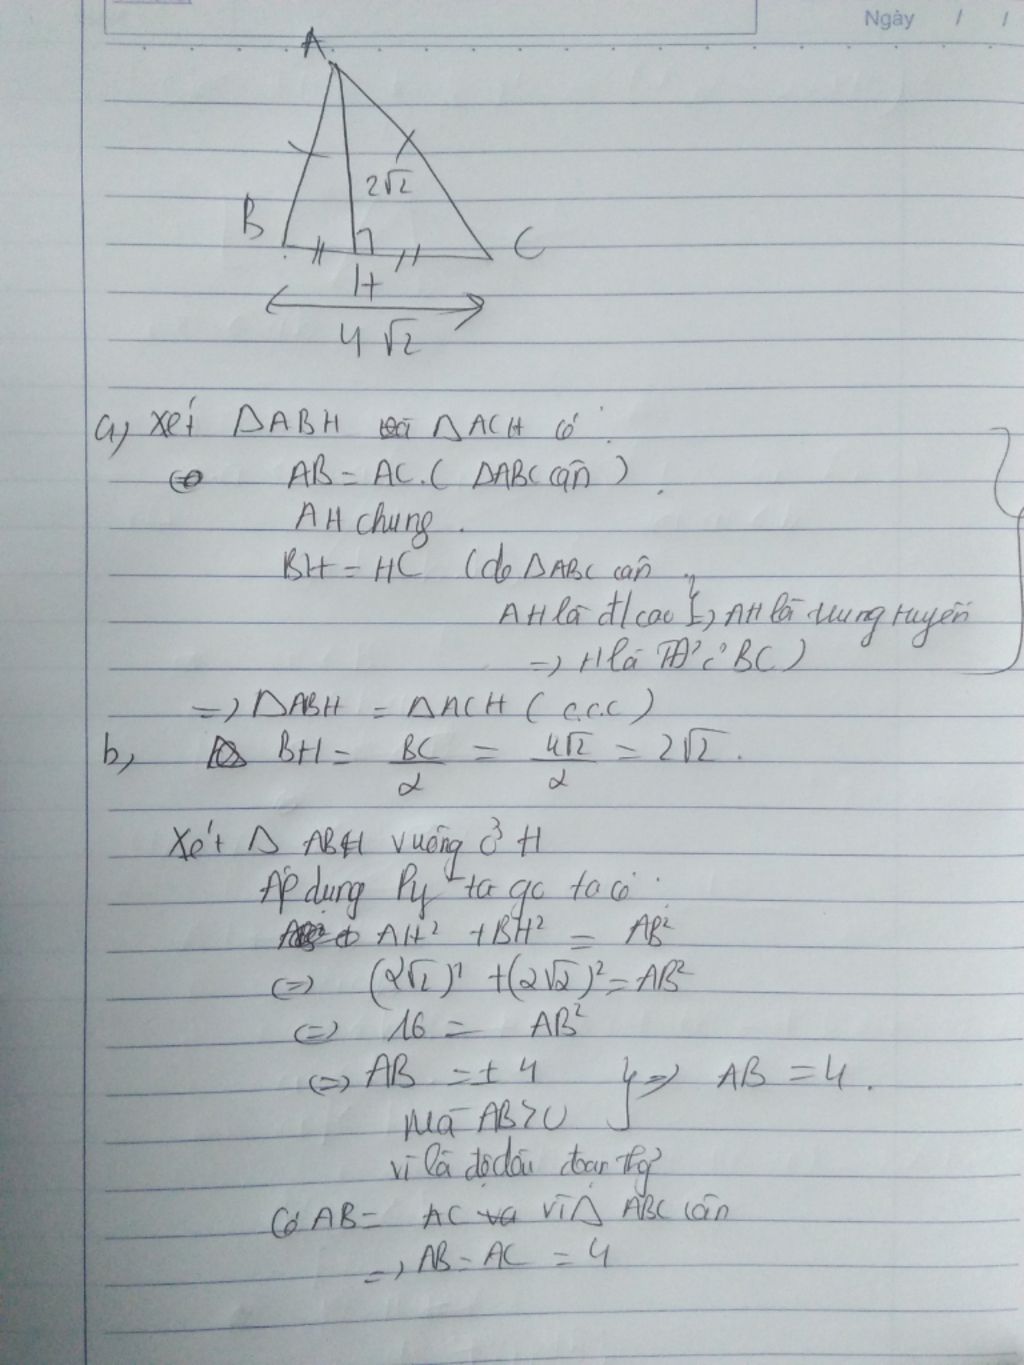 Ngày / /
A
2√2
B
C
H
4√2
a) Xét ΔABH và ΔACH có :
AB = AC. ( ΔABC cân )
AH chung.
BH = HC (do ΔABC cân
AH là đ/cao } => AH là trung tuyến
=> H là TĐ' c' BC )
=> ΔABH = ΔACH ( c.c.c )
b, BH = BC/2 = 4√2/2 = 2√2.
Xét Δ ABH vuông ở H
Áp dụng Py-ta go ta có :
AH² + BH² = AB²
(=) (2√2)² + (2√2)² = AB²
(=) 16 = AB²
(=) AB = ± 4 } => AB = 4.
Mà AB > 0
vì là độ dài đoạn thg'
Có AB = AC vì Δ ABC cân
=> AB = AC = 4